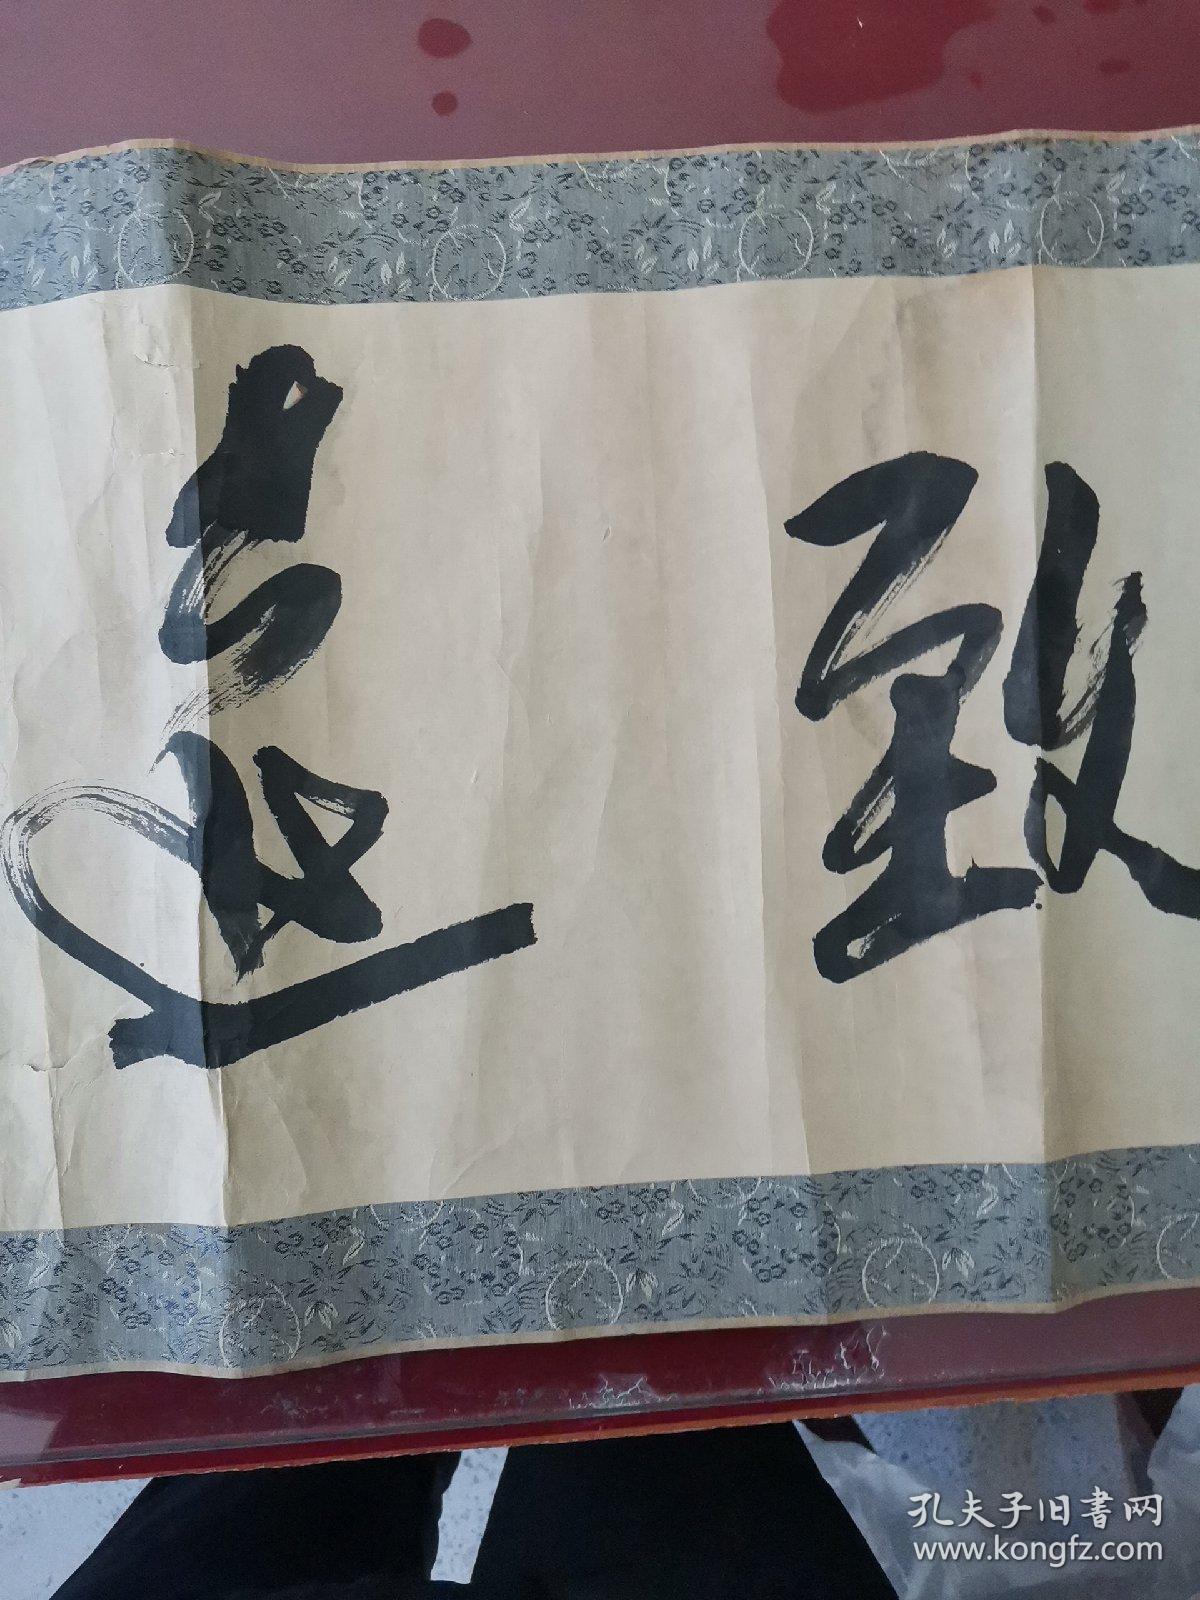 致遠
孔夫子旧書网
www.kongfz.com